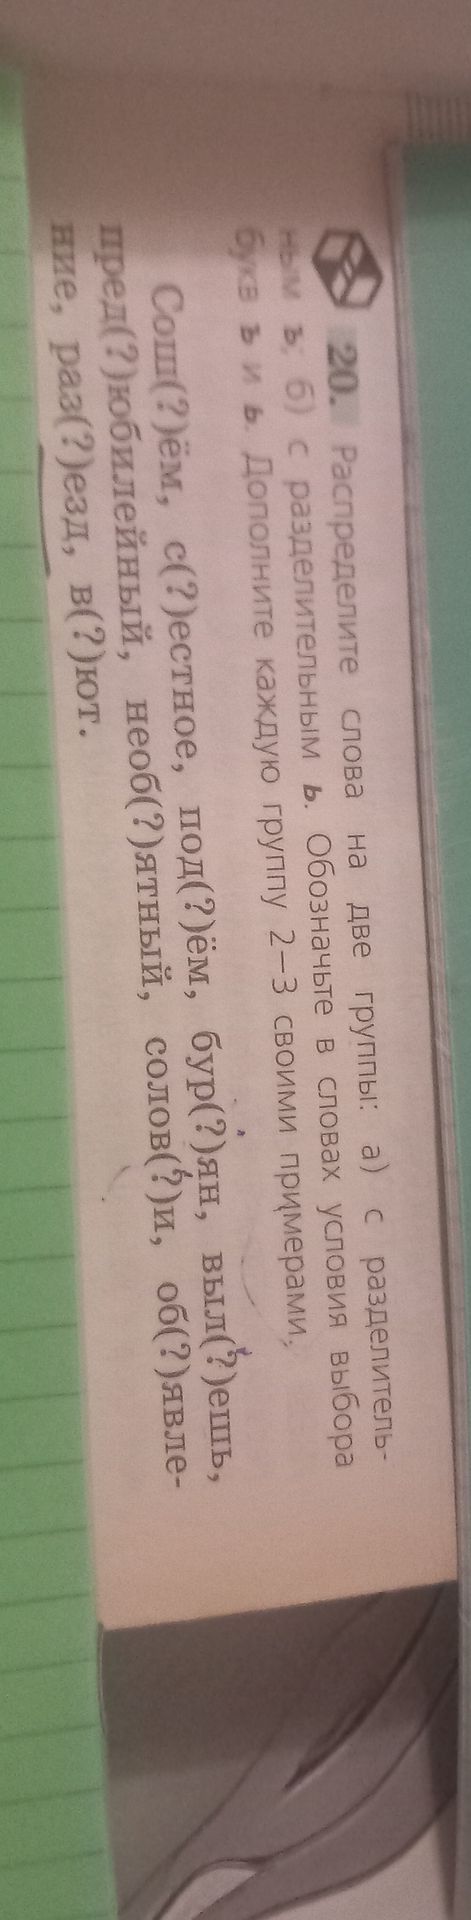 20. Распределите слова на две группы: а) с разделитель-
ным ъ; б) с разделительным ь. Обозначьте в словах условия выбора
букв ъ и ь. Дополните каждую группу 2–3 своими примерами.
Сош(?)ём, с(?)естное, под(?)ём, бур(?)ян, выл(?)ешь,
пред(?)юбилейный, необ(?)ятный, солов(?)и, об(?)явле-
ние, раз(?)езд, в(?)ют.